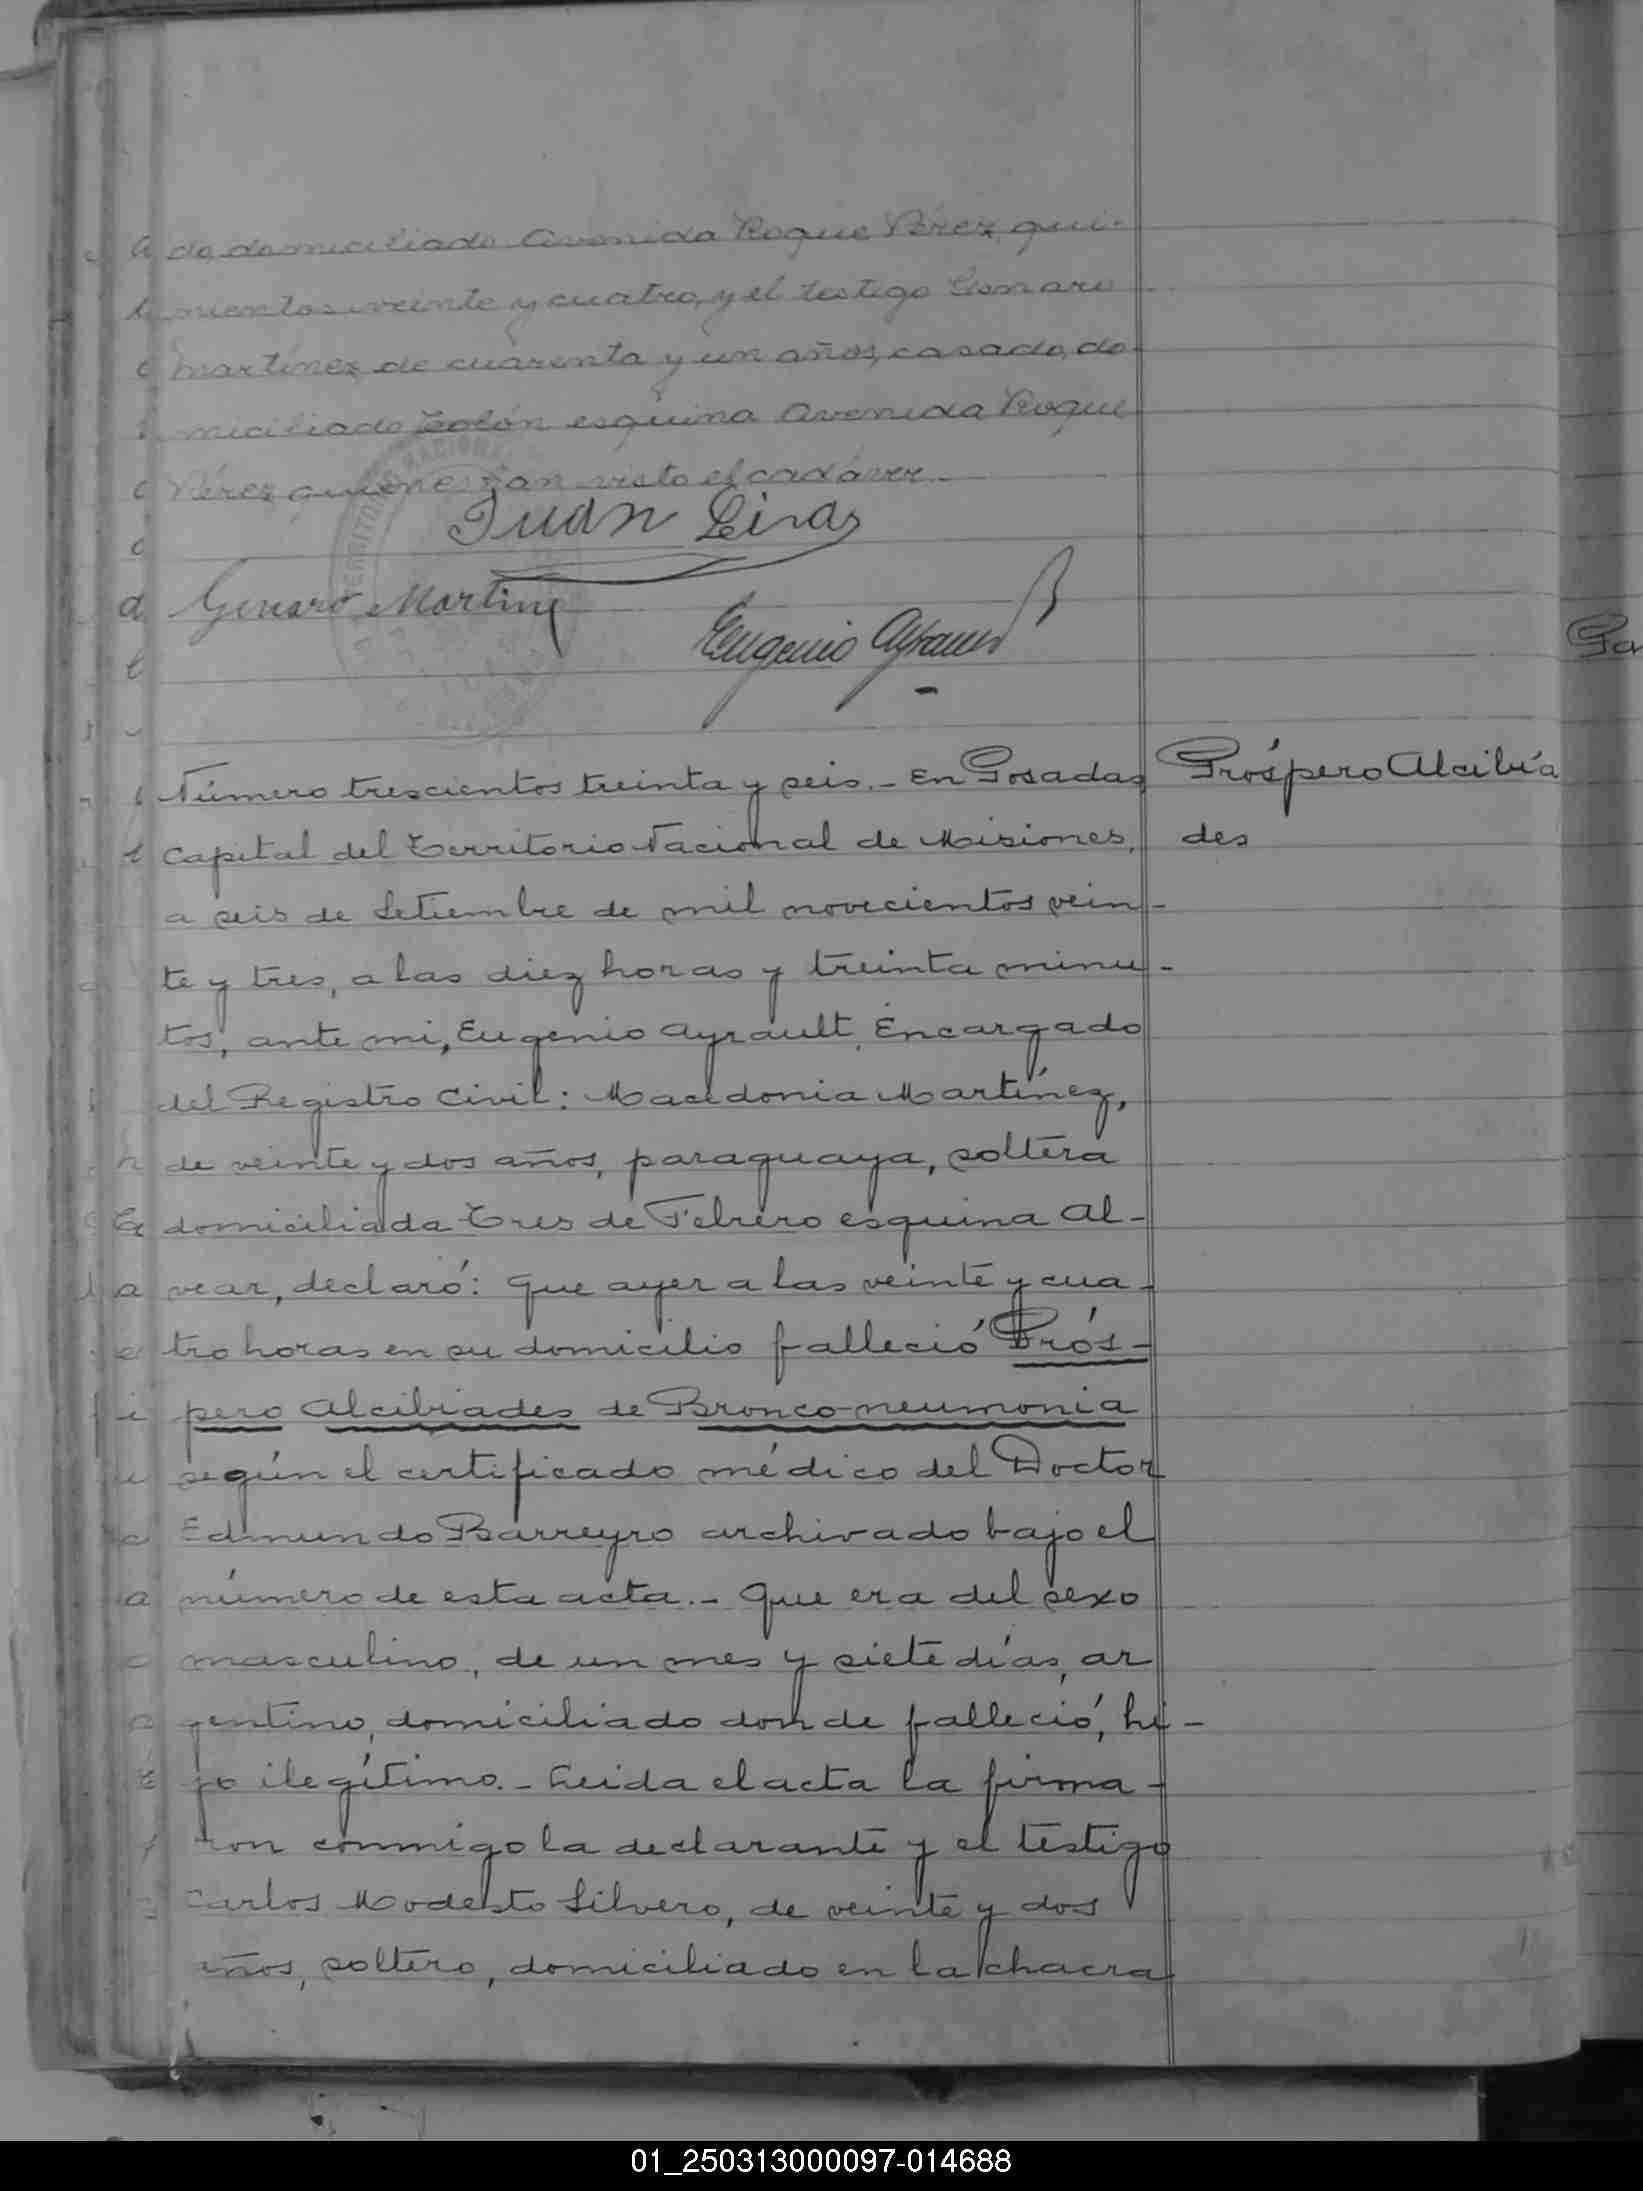 do, domiciliado Avenida Roque Pérez qui-
nientos veinte y cuatro, y el testigo Genaro
Martínez de cuarenta y un años, casado, do-
miciliado Colón esquina Avenida Roque
Pérez quienes han visto el cadáver.-
Juan Liras
Genaro Martinez
Eugenio Ayrault
Número trescientos treinta y seis.- En Posadas
Próspero Alcibía
Capital del Territorio Nacional de Misiones,
des
a seis de Setiembre de mil novecientos vein-
te y tres, a las diez horas y treinta minu-
tos, ante mi, Eugenio Ayrault, Encargado
del Registro Civil: Macedonia Martínez,
de veinte y dos años, paraguaya, soltera
domiciliada Tres de Febrero esquina Al-
vear, declaró: Que ayer a las veinte y cua-
tro horas en su domicilio falleció Prós-
pero Alcibiades de Bronco-neumonia
según el certificado médico del Doctor
Edmundo Barreyro archivado bajo el
número de esta acta.- Que era del sexo
masculino, de un mes y siete días, ar
gentino, domiciliado donde falleció, hi-
jo ilegítimo.- Leida el acta la firma-
ron conmigo la declarante y el testigo
Carlos Modesto Silvero, de veinte y dos
años, soltero, domiciliado en la chacra
01_250313000097-014688